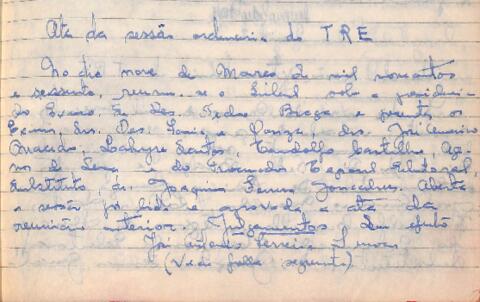 Ata da sessão ordinaria do TRE
No dia nove de Março de mil novecentos
e sessenta, reuniu-se o Tribunal sob a presidencia
do Exmo. Sr. Des. Pedro Braga e presentes os
Exmos. Srs. Des. e drs. José
Macedo, Santos, Castilho,
de e do Procurador Regional Eleitoral,
Substituto, dr. Joaquim Gonçalves. Aberta
a sessão foi lida e aprovada a ata da
reunião anterior. Julgamentos Sem efeito
José Ferreira
(Vide folha seguinte)